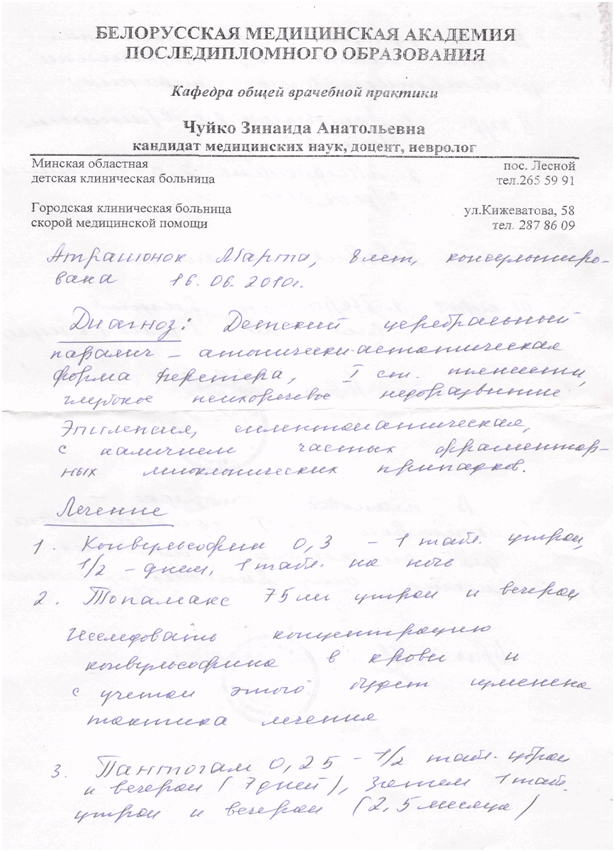 БЕЛОРУССКАЯ МЕДИЦИНСКАЯ АКАДЕМИЯ
ПОСЛЕДИПЛОМНОГО ОБРАЗОВАНИЯ
Кафедра общей врачебной практики
Чуйко Зинаида Анатольевна
кандидат медицинских наук, доцент, невролог
Минская областная пос. Лесной
детская клиническая больница тел.265 59 91
Городская клиническая больница ул.Кижеватова, 58
скорой медицинской помощи тел. 287 86 09
Атрашонок Марта, 8 лет, консультиро-
вана 16.06.2010г.
Диагноз: Детский церебральный
паралич – атонически-астатическая
форма Ферстера, I ст. тяжести,
глубокое психоречевое недоразвитие.
Эпилепсия, симптоматическая,
с наличием частых фрагментар-
ных миоклонических припадков.
Лечение
1. Конвульсофин 0,3 – 1 табл. утром,
1/2 – днем, 1 табл. на ночь
2. Топамакс 75 мг утром и вечером
Исследовать концентрацию
конвульсофина в крови и
с учетом этого будет изменена
тактика лечения
3. Пантогам 0,25 – 1/2 табл. утром
и вечером (7 дней), затем 1 таб.
утром и вечером (2,5 месяца)